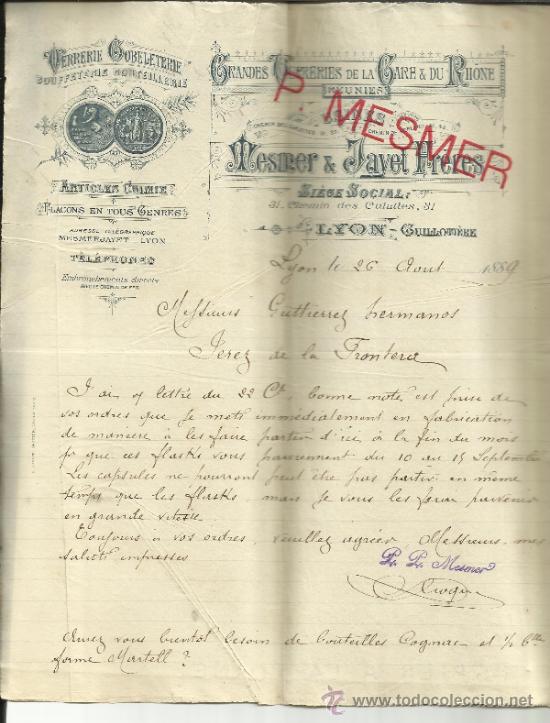 VERRERIE GOBELETERIE
BOUFFETERIE BOUTEILLERIE
ARTICLES CHIMIE
FLACONS EN TOUS GENRES
ADRESSE TÉLÉGRAPHIQUE
MESMERJAYET LYON
TÉLÉPHONES
Embranchements directs
GRANDES VERRERIES DE LA GARE & DU RHÔNE
RÉUNIES
P. MESMER
Mesmer & Jayet Frères
SIÈGE SOCIAL:
31, Chemin des Culattes, 31
LYON-GUILLOTIÈRE
Lyon le 26 Aout 1889
Messieurs Guttierrez hermanos
Jerez de la Frontera
J'ai lettre du 22 Ct, bonne note est prise de
vos ordres que je mets immédiatement en fabrication
de manière à les faire partir d'ici à la fin du mois
pr que ces flasks vous parviennent du 10 au 15 Septembre
Les capsules ne pourront peut être pas partir en même
temps que les flasks, mais je vous les ferai parvenir
en grande vitesse
Toujours à vos ordres, veuillez agréer Messieurs, mes
saluts empressés
Pr. P. Mesmer
Avez vous bientôt besoin de bouteilles Cognac et 1/2 Blle
forme Martell ?
www.todocoleccion.net